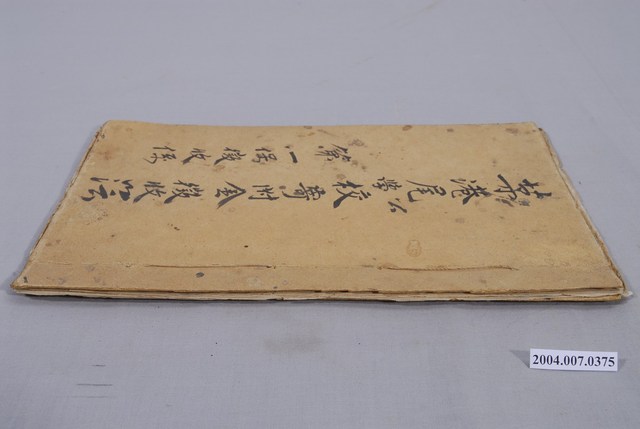 草港尾公學校寄附金徵收
第一保徵收係
2004.007.0375